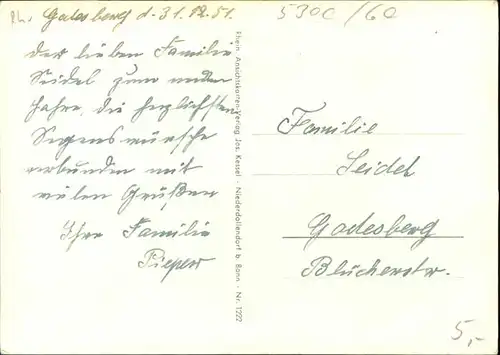 Godesberg d. 31.12.51.
5300 / 60
Der lieben Familie
Seidel zum neuen
Jahre, die herzlichsten
Segenswünsche
verbunden mit
vielen Grüßen
Ihre Familie
Pieper
Rhein. Ansichtskarten-Verlag Jos. Kessel · Niederdollendorf b. Bonn · Nr. 1222
Familie
Seidel
Godesberg
Blücherstr.
5,-